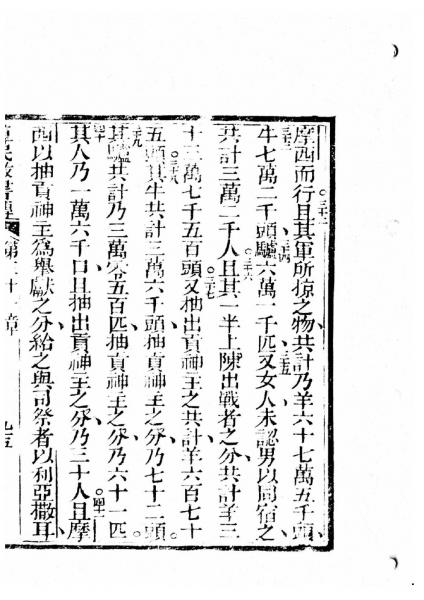 摩西而行且其軍所掠之物共計乃羊六十七萬五千頭
牛七萬二千頭驢六萬一千匹又女人未認男以同宿之
共計三萬二千人且其一半上陳出戰者之分共計羊三
十三萬七千五百頭又抽出貢神主之共計羊六百七十
五頭其牛共計三萬六千頭抽貢神主之分乃七十二頭
其驢共計乃三萬零五百匹抽貢神主之分乃六十一匹
其人乃一萬六千口且抽出貢神主之分乃三十人且摩
西以抽貢神主為舉獻之分給之與司祭者以利亞撒耳